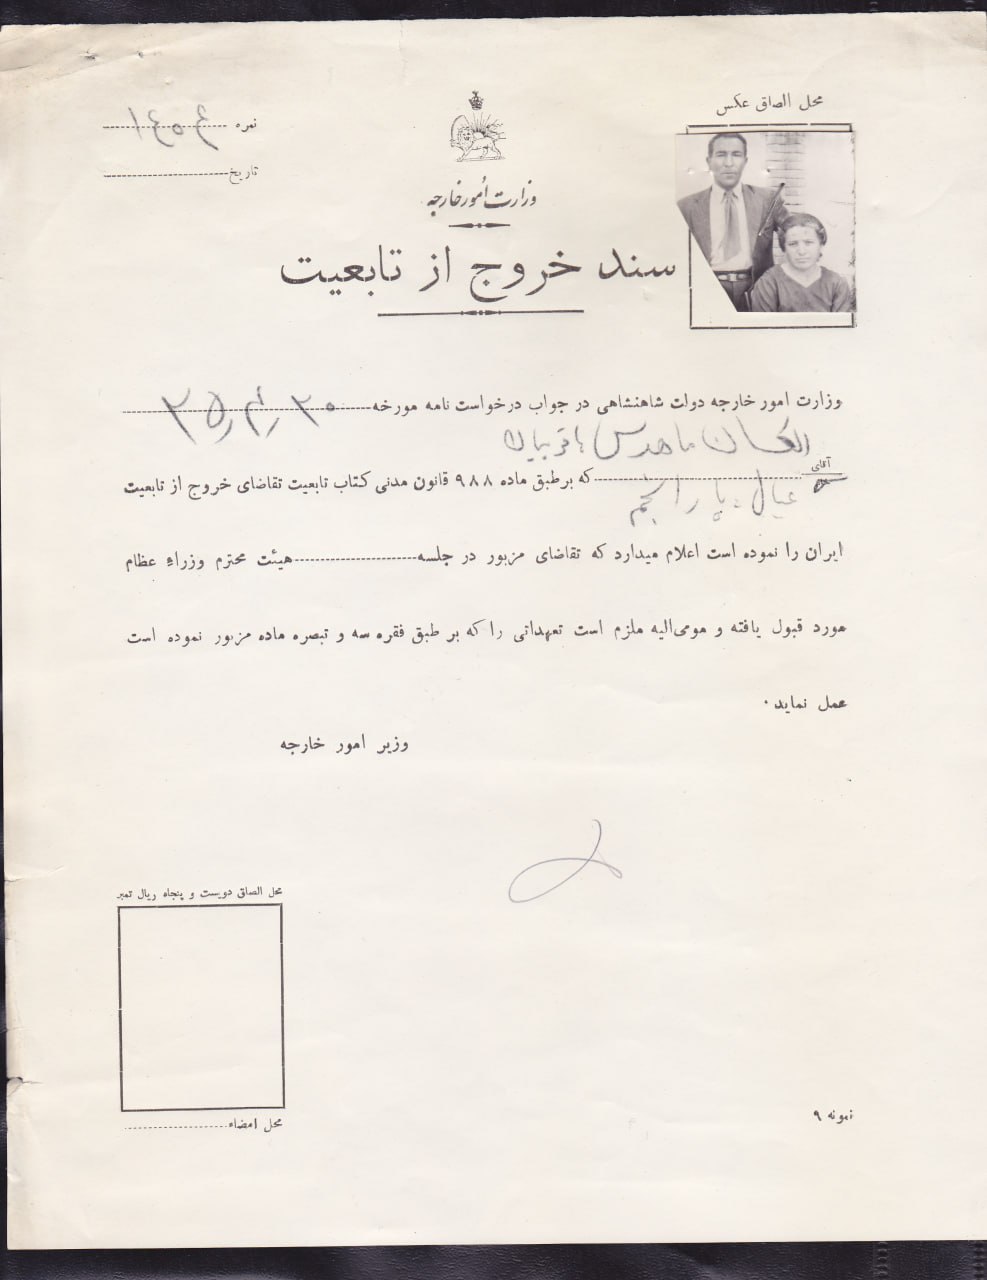 محل الصاق عکس
نمره
تاریخ
وزارت أمور خارجه
سند خروج از تابعیت
وزارت امور خارجه دولت شاهنشاهی در جواب درخواست نامه مورخه ۲۰
آقای
که برطبق ماده ۹۸۸ قانون مدنی کتاب تابعیت تقاضای خروج از تابعیت
عیال
ایران را نموده است اعلام میدارد که تقاضای مزبور در جلسه هیئت محترم وزراء عظام
مورد قبول یافته و مومی‌الیه ملزم است تعهداتی را که بر طبق فقره سه و تبصره ماده مزبور نموده است
عمل نماید.
وزیر امور خارجه
محل الصاق دویست و پنجاه ریال تمبر
محل امضاء
نمونه ۹